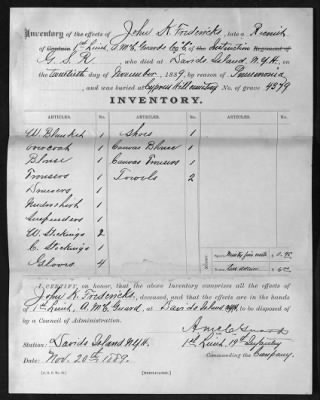 Inventory of the effects of John H. Fredericks, late a Recruit
of Captain 1st Lieut. A. McC. Guard's Co. "C" of the Instruction Regiment of
G. S. R. who died at Davids Island, N.Y.H., on the
twentieth day of November, 1889, by reason of Pneumonia
and was buried at Cypress Hill cemetery No. of grave 4379
INVENTORY.
ARTICLES. No. ARTICLES. No. ARTICLES. No.
W. Blanket 1 Shoes 1
Overcoat 1 Canvas Blouse 1
Blouse 1 Canvas Trousers 1
Trousers 1 Towels 2
Drawers 1
Undershirt 1
Suspenders 1
W. Stockings 2
C. Stockings 1
Gloves 4
I CERTIFY, on honor, that the above Inventory comprises all the effects of
John H. Fredericks, deceased, and that the effects are in the hands
of 1st Lieut. A. McC. Guard, at Davids Island NYH, to be disposed of
by a Council of Administration.
Station: Davids Island N.Y.H.
1st Lieut. 19th Infantry
Date: Nov. 20th 1889.
Commanding the Company.